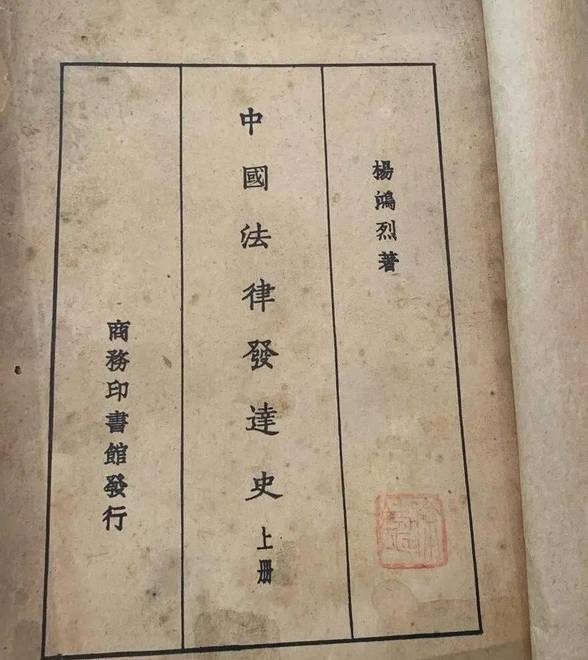 楊鴻烈著
中國法律發達史 上册
商務印書館發行